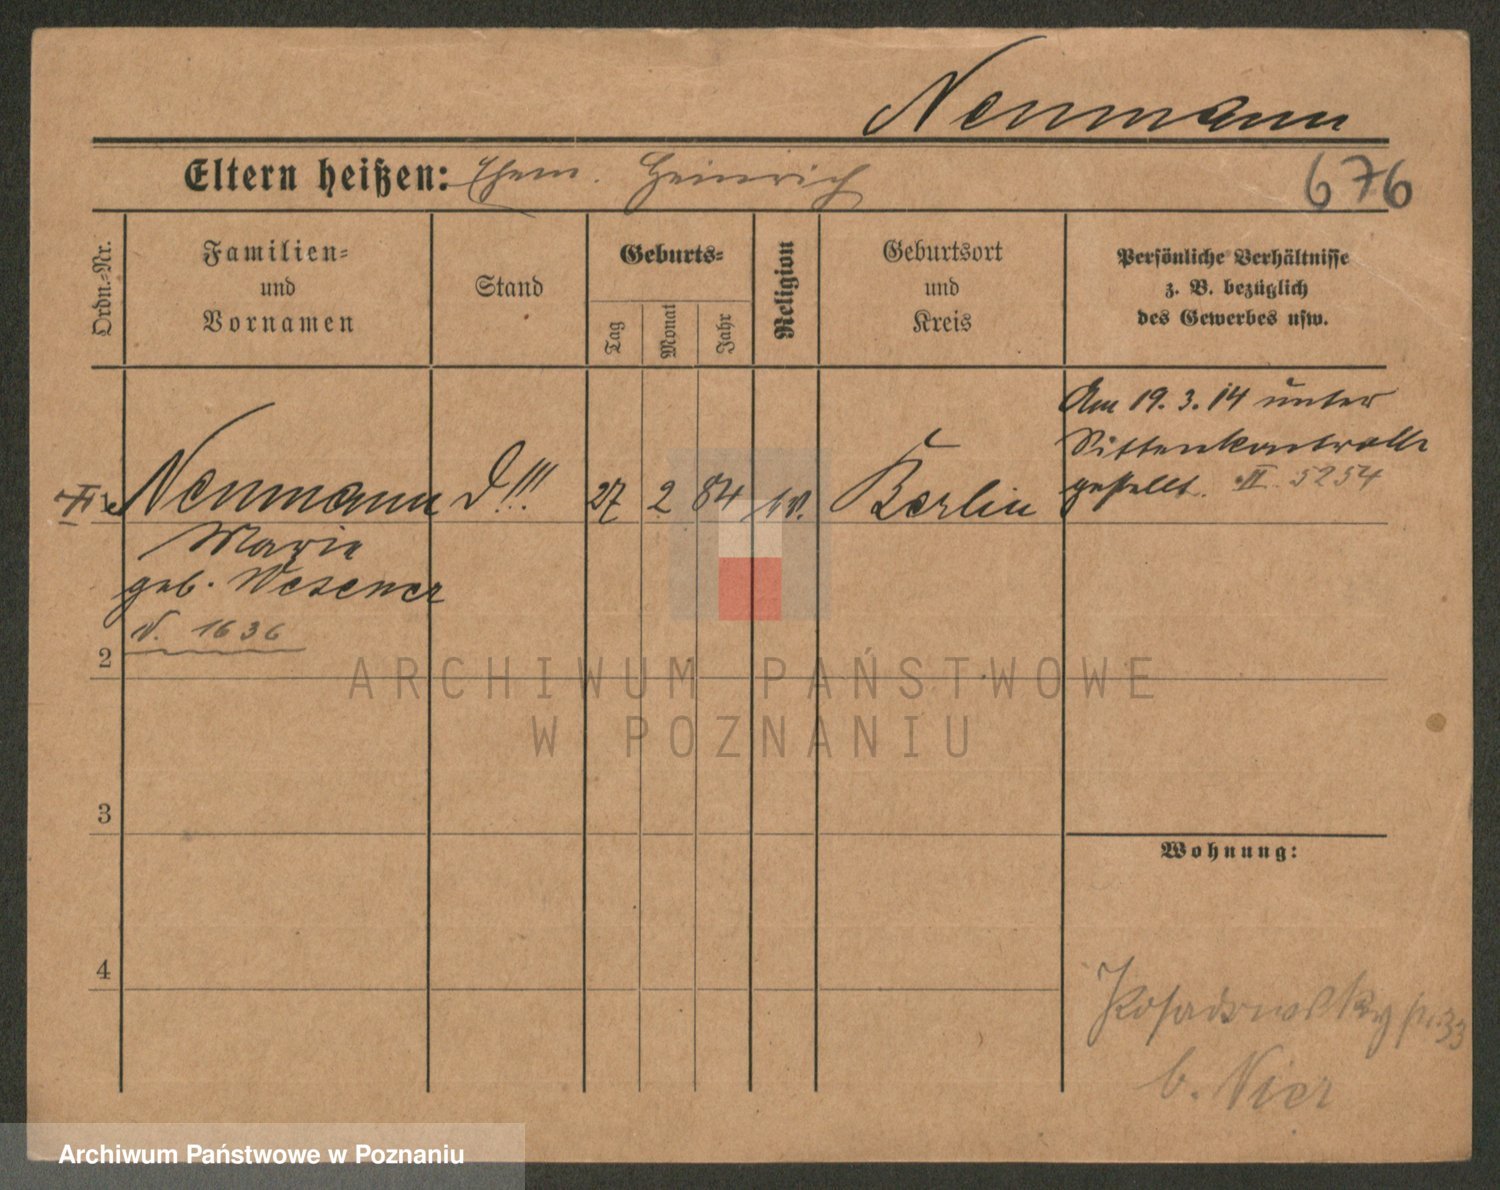 Neumann
Eltern heißen: Ehem. Heinrich
676
Ordn.-Nr.
Familien-
und
Vornamen
Stand
Geburts-
Tag
Monat
Jahr
Religion
Geburtsort
und
Kreis
Persönliche Verhältnisse
z. B. bezüglich
des Gewerbes usw.
Neumann
Marie
geb. Wesener
V. 1636
D!!!
27
2
84
ev.
Berlin
Am 19.3.14 unter
Sittenkontrolle
gestellt. II. 5254
2
3
4
Wohnung:
Posadowsky str. 33
b. Nier
ARCHIWUM PAŃSTWOWE
W POZNANIU
Archiwum Państwowe w Poznaniu